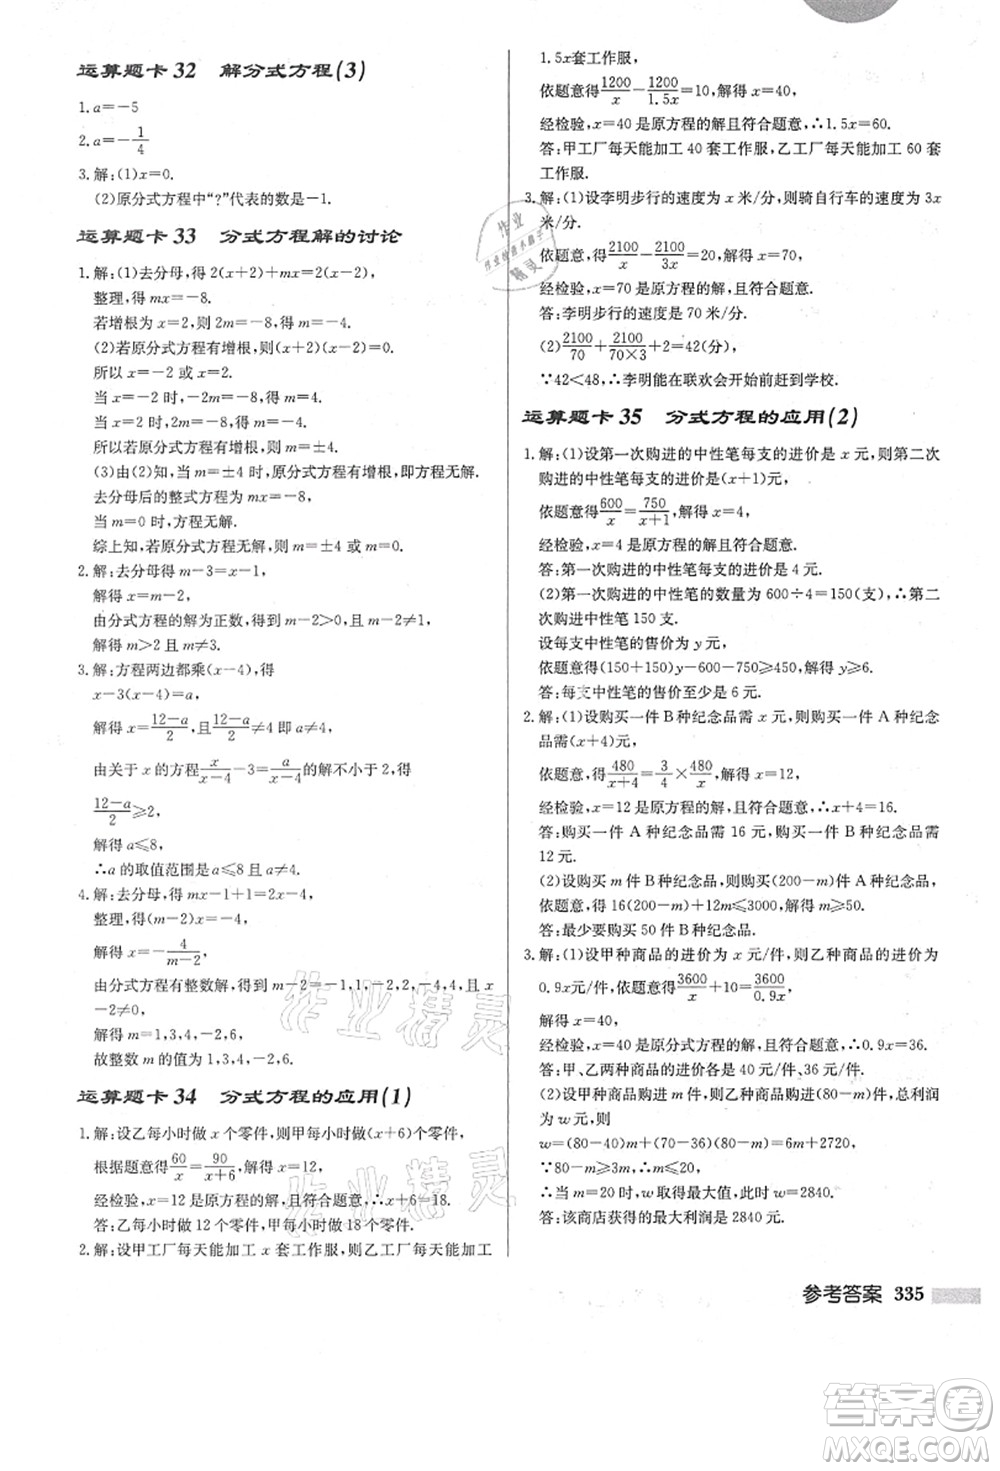 运算题卡 32 解分式方程(3)
1. a=-5
2. a=-1/4
3. 解:(1)x=0.
(2)原分式方程中“?”代表的数是-1.
运算题卡 33 分式方程解的讨论
1. 解:(1)去分母,得 2(x+2)+mx=2(x-2),
整理,得 mx=-8.
若增根为 x=2,则 2m=-8,得 m=-4.
(2)若原分式方程有增根,则(x+2)(x-2)=0.
所以 x=-2 或 x=2.
当 x=-2 时,-2m=-8,得 m=4.
当 x=2 时,2m=-8,得 m=-4.
所以若原分式方程有增根,则 m=±4.
(3)由(2)知,当 m=±4 时,原分式方程有增根,即方程无解.
去分母后的整式方程 mx=-8.
当 m=0 时,方程无解.
综上知,若原分式方程无解,则 m=±4 或 m=0.
2. 解:去分母得 m-3=x-1,
解得 x=m-2,
由分式方程的解为正数,得到 m-2>0,且 m-2≠1,
解得 m>2 且 m≠3.
3. 解:方程两边都乘(x-4),得
x-3(x-4)=a,
解得 x=(12-a)/2,且(12-a)/2≠4 即 a≠4,
由关于 x 的方程 x/(x-4)-3=a/(x-4)的解不小于 2,得
(12-a)/2≥2,
解得 a≤8,
∴a 的取值范围是 a≤8 且 a≠4.
4. 解:去分母,得 mx-1+1=2(x-2),
整理,得(m-2)x=-4,
解得 x=-4/(m-2),
由分式方程有整数解,得到 m-2=-1,1,-2,2,-4,4,且 x
-2≠0,
解得 m=1,3,4,-2,6,
故整数 m 的值为 1,3,4,-2,6.
运算题卡 34 分式方程的应用(1)
1. 解:设乙每小时做 x 个零件,则甲每小时做(x+6)个零件,
根据题意得 60/x=90/(x+6),解得 x=12,
经检验,x=12 是原方程的解,且符合题意,∴x+6=18.
答:乙每小时做 12 个零件,甲每小时做 18 个零件.
2. 解:设甲工厂每天能加工 x 套工作服,则乙工厂每天能加工
1.5x套工作服,
依题意得 1200/x-1200/1.5x=10,解得 x=40,
经检验,x=40 是原方程的解且符合题意,∴1.5x=60.
答:甲工厂每天能加工 40 套工作服,乙工厂每天能加工 60 套
工作服.
3. 解:(1)设李明步行的速度为 x 米/分,则骑自行车的速度为 3x
米/分.
依题意,得 2100/x-2100/3x=20,解得 x=70,
经检验,x=70 是原方程的解,且符合题意.
答:李明步行的速度是 70 米/分.
(2)2100/70+2100/(70×3)+2=42(分),
∵42<48,∴李明能在联欢会开始前赶到学校.
运算题卡 35 分式方程的应用(2)
1. 解:(1)设第一次购进的中性笔每支的进价是 x 元,则第二次
购进的中性笔每支的进价是(x+1)元,
依题意得 600/x=750/(x+1),解得 x=4,
经检验,x=4 是原方程的解且符合题意.
答:第一次购进的中性笔每支的进价是 4 元.
(2)第一次购进的中性笔的数量为 600÷4=150(支),∴第二
次购进中性笔 150 支.
设每支中性笔的售价为 y 元,
依题意得(150+150)y-600-750≥450,解得 y≥6.
答:每支中性笔的售价至少是 6 元.
2. 解:(1)设购买一件 B 种纪念品需 x 元,则购买一件 A 种纪念
品需(x+4)元,
依题意,得 480/(x+4)=3/4×480/x,解得 x=12,
经检验,x=12 是原方程的解,且符合题意,∴x+4=16.
答:购买一件 A 种纪念品需 16 元,购买一件 B 种纪念品需
12 元.
(2)设购买 m 件 B 种纪念品,则购买(200-m)件 A 种纪念品,
依题意,得 16(200-m)+12m≤3000,解得 m≥50.
答:最少要购买 50 件 B 种纪念品.
3. 解:(1)设甲种商品的进价为 x 元/件,则乙种商品的进价为
0.9x 元/件,依题意,得 3600/x+10=3600/0.9x,
解得 x=40,
经检验,x=40 是原分式方程的解,且符合题意,∴0.9x=36.
答:甲、乙两种商品的进价分别为 40 元/件、36 元/件.
(2)设甲种商品购进 m 件,则乙种商品购进(80-m)件,总利润
为 w 元,则
w=(80-40)m+(70-36)(80-m)=6m+2720,
∵80-m≥3m,∴m≤20,
∴当 m=20 时,w 取得最大值,此时 w=2840.
答:该商店获得的最大利润是 2840 元.
参考答案 335
作业精灵
作业精灵
答案圈
MXQE.COM